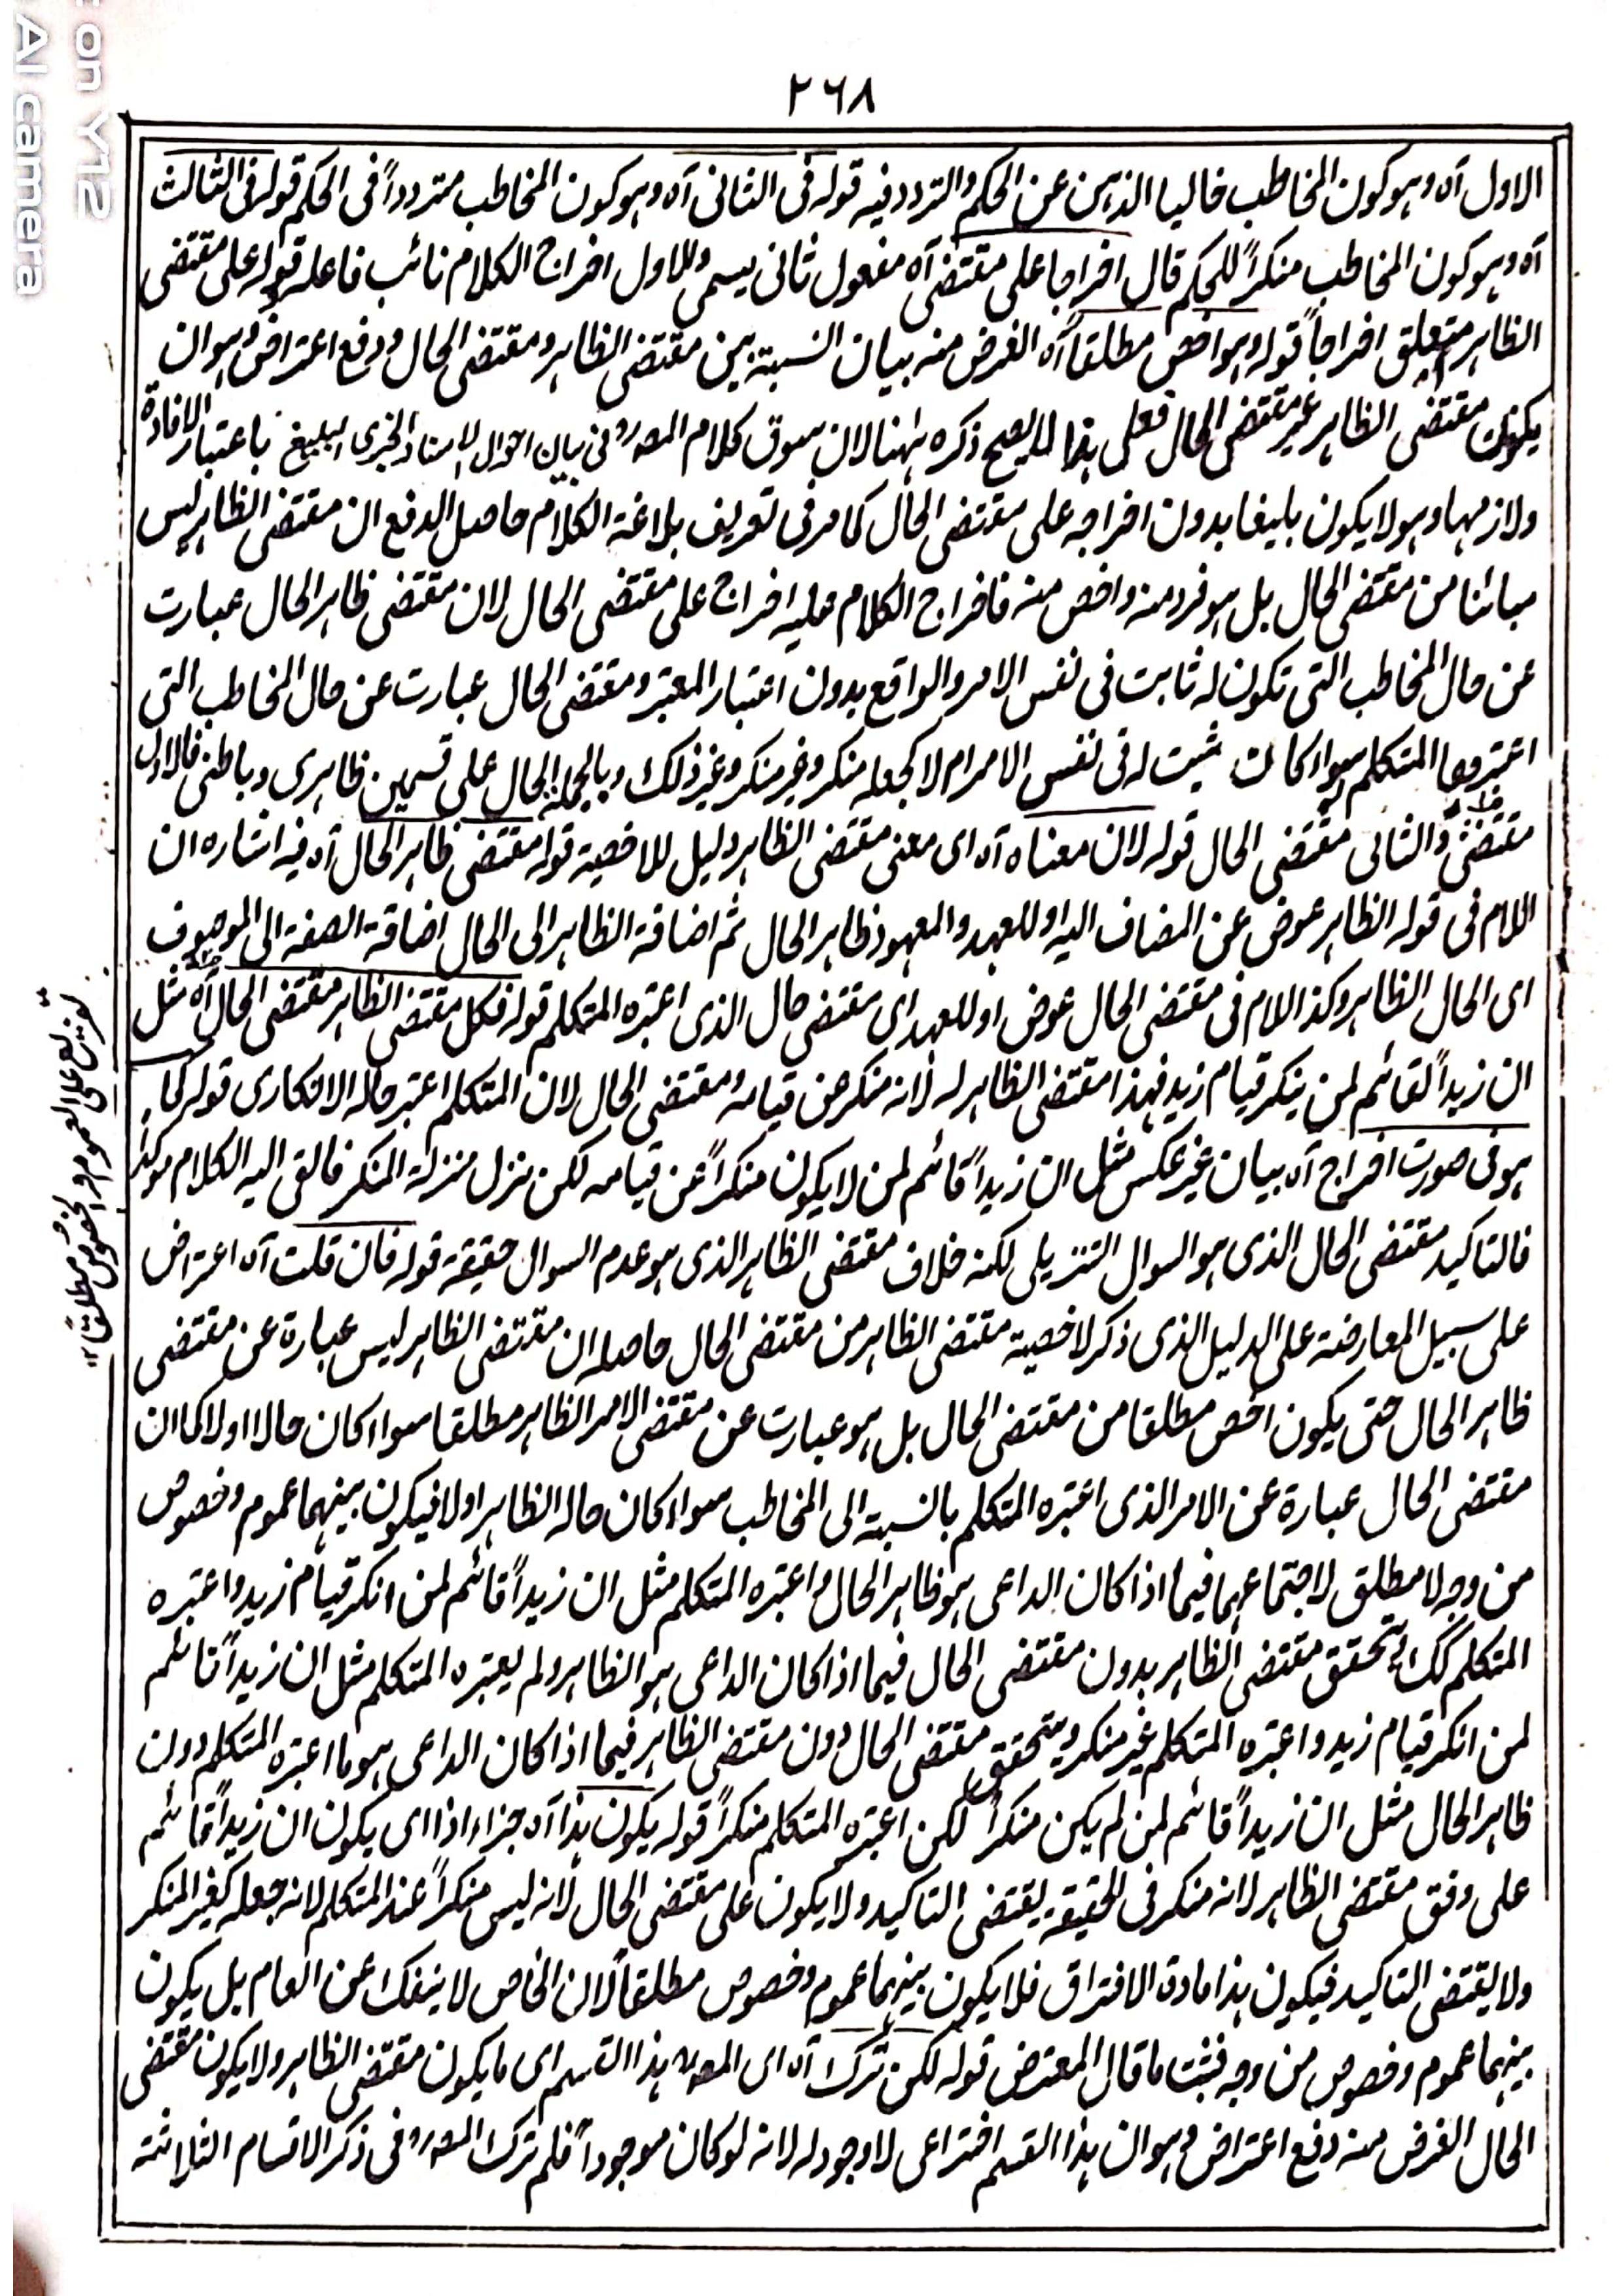 ٢٦٨
الاول آه وہو کون المخاطب خالیا الذہن عن الحکم والتردد فیہ قولہ فی الثانی آہ وہو کون المخاطب متردداً فی الحکم قولہ فی الثالث
آہ وہو کون المخاطب منکراً للحکم قال اخراجا علی مقتضی آہ مفعول ثانی یسمی والاول اخراج الکلام نائب فاعلہ قولہ علی مقتضی
الظاہر متعلق اخراجاً قولہ وہو اخص مطلقاً آہ الغرض منہ بیان النسبۃ بین مقتضی الظاہر و مقتضی الحال و دفع اعتراض وہو ان
یکون مقتضی الظاہر غیر مقتضی الحال فعلی ہذا لا یصح ذکرہ ہٰہنا لان سوق کلام المصرو فی بیان احوال الاسناد الخبری البلیغ باعتبار الافادۃ
ولازمہا وہو لا یکون بلیغا بدون اخراجہ علی مقتضی الحال کما مر فی تعریف بلاغۃ الکلام حاصل الدفع ان مقتضی الظاہر لیس
مبائنا من مقتضی الحال بل ہو فرد منہ واخص منہ فاخراج الکلام علیہ اخراج علی مقتضی الحال لان مقتضی ظاہر الحال عبارت
عن حال المخاطب التی تکون لہ ثابت فی نفس الامر والواقع بدون اعتبار المعتبر و مقتضی الحال عبارت عن حال المخاطب التی
اعتبرہا المتکلم سواء کانت ثبت لہ فی نفس الامر ام لا کجعلہ منکر وغیر منکر وغیر ذلک و بالجملۃ الحال علی قسمین ظاہری و باطنی فالاول
مقتضی والثانی مقتضی الحال قولہ لان معناہ آہ ای معنی مقتضی الظاہر دلیل للاخصیۃ قولہ مقتضی ظاہر الحال آہ فیہ اشارہ ان
اللام فی قولہ الظاہر عوض عن المضاف الیہ او للعہد والمعہود ظاہر الحال ثم اضافۃ الظاہر الی الحال اضافۃ الصفۃ الی الموصوف
ای الحال الظاہر وکذا اللام فی مقتضی الحال عوض او للعہد ای مقتضی حال الذی اعتبرہ المتکلم قولہ فکل مقتضی الظاہر مقتضی الحال آہ مثل
ان زیداً لقائم لمن ینکر قیام زید فہذا مقتضی الظاہر لہ لانہ منکر عن قیامہ و مقتضی الحال لان المتکلم اعتبر حالہ الانکاری قولہ کما
ہو فی صورت اخراج آہ بیان غیر عکس مثل ان زیداً قائم لمن لا یکون منکراً عن قیامہ لکن نزل منزلۃ المنکر فالقی الیہ الکلام موکد
فالتاکید مقتضی الحال الذی ہو السوال التنزیلی لکنہ خلاف مقتضی الظاہر الذی ہو عدم السوال حقیقۃ قولہ فان قلت آہ اعتراض
علی سبیل المعارضۃ علی الدلیل الذی ذکر لاخصیۃ مقتضی الظاہر من مقتضی الحال حاصلہ ان مقتضی الظاہر لیس عبارۃ عن مقتضی
ظاہر الحال حتی یکون اخص مطلقا من مقتضی الحال بل ہو عبارت عن مقتضی الامر الظاہر مطلقا سواء کان حالا اولا کما ان
مقتضی الحال عبارۃ عن الامر الذی اعتبرہ المتکلم بالنسبۃ الی المخاطب سواء کان حالہ الظاہر اولا فیکون بینہما عموم و خصوص
من وجہ لا مطلق لاجتماعہما فیما اذا کان الداعی ہو ظاہر الحال و اعتبرہ المتکلم مثل ان زیداً قائم لمن انکر قیام زید و اعتبرہ
المتکلم کک و یتحقق مقتضی الظاہر بدون مقتضی الحال فیما اذا کان الداعی ہو الظاہر ولم یعتبرہ المتکلم مثل ان زیداً قائم
لمن انکر قیام زید و اعتبرہ المتکلم غیر منکر و یتحقق مقتضی الحال دون مقتضی الظاہر فیما اذا کان الداعی ہو ما اعتبرہ المتکلم دون
ظاہر الحال مثل ان زیداً قائم لمن لم یکن منکراً لکن اعتبرہ المتکلم منکراً قولہ یکون ہذا آہ جزاء اذا ای یکون ان زیداً قائم
علی وفق مقتضی الظاہر لانہ منکر فی الحقیقۃ یقتضی التاکید ولا یکون علی مقتضی الحال لانہ لیس منکراً عند المتکلم لانہ جعلہ کغیر المنکر
ولا یقتضی التاکید فیکون ہذا مادۃ الافتراق فلا یکون بینہما عموم و خصوص مطلقاً لان الخاص لا ینفک عن العام بل یکون
بینہما عموم و خصوص من وجہ فثبت ما قال المعترض قولہ لکن ترک آہ ای المصرو ہذا القسم ای ما یکون مقتضی الظاہر ولا یکون مقتضی
الحال الغرض منہ دفع اعتراض وہو ان ہذا القسم اختراعی لا وجود لہ لانہ لو کان موجوداً فلم ترک المصرو فی ذکر الاقسام الثلاثۃ
تفریع علی العموم والخصوص مطلقاً ١٢
on Y12
AI camera